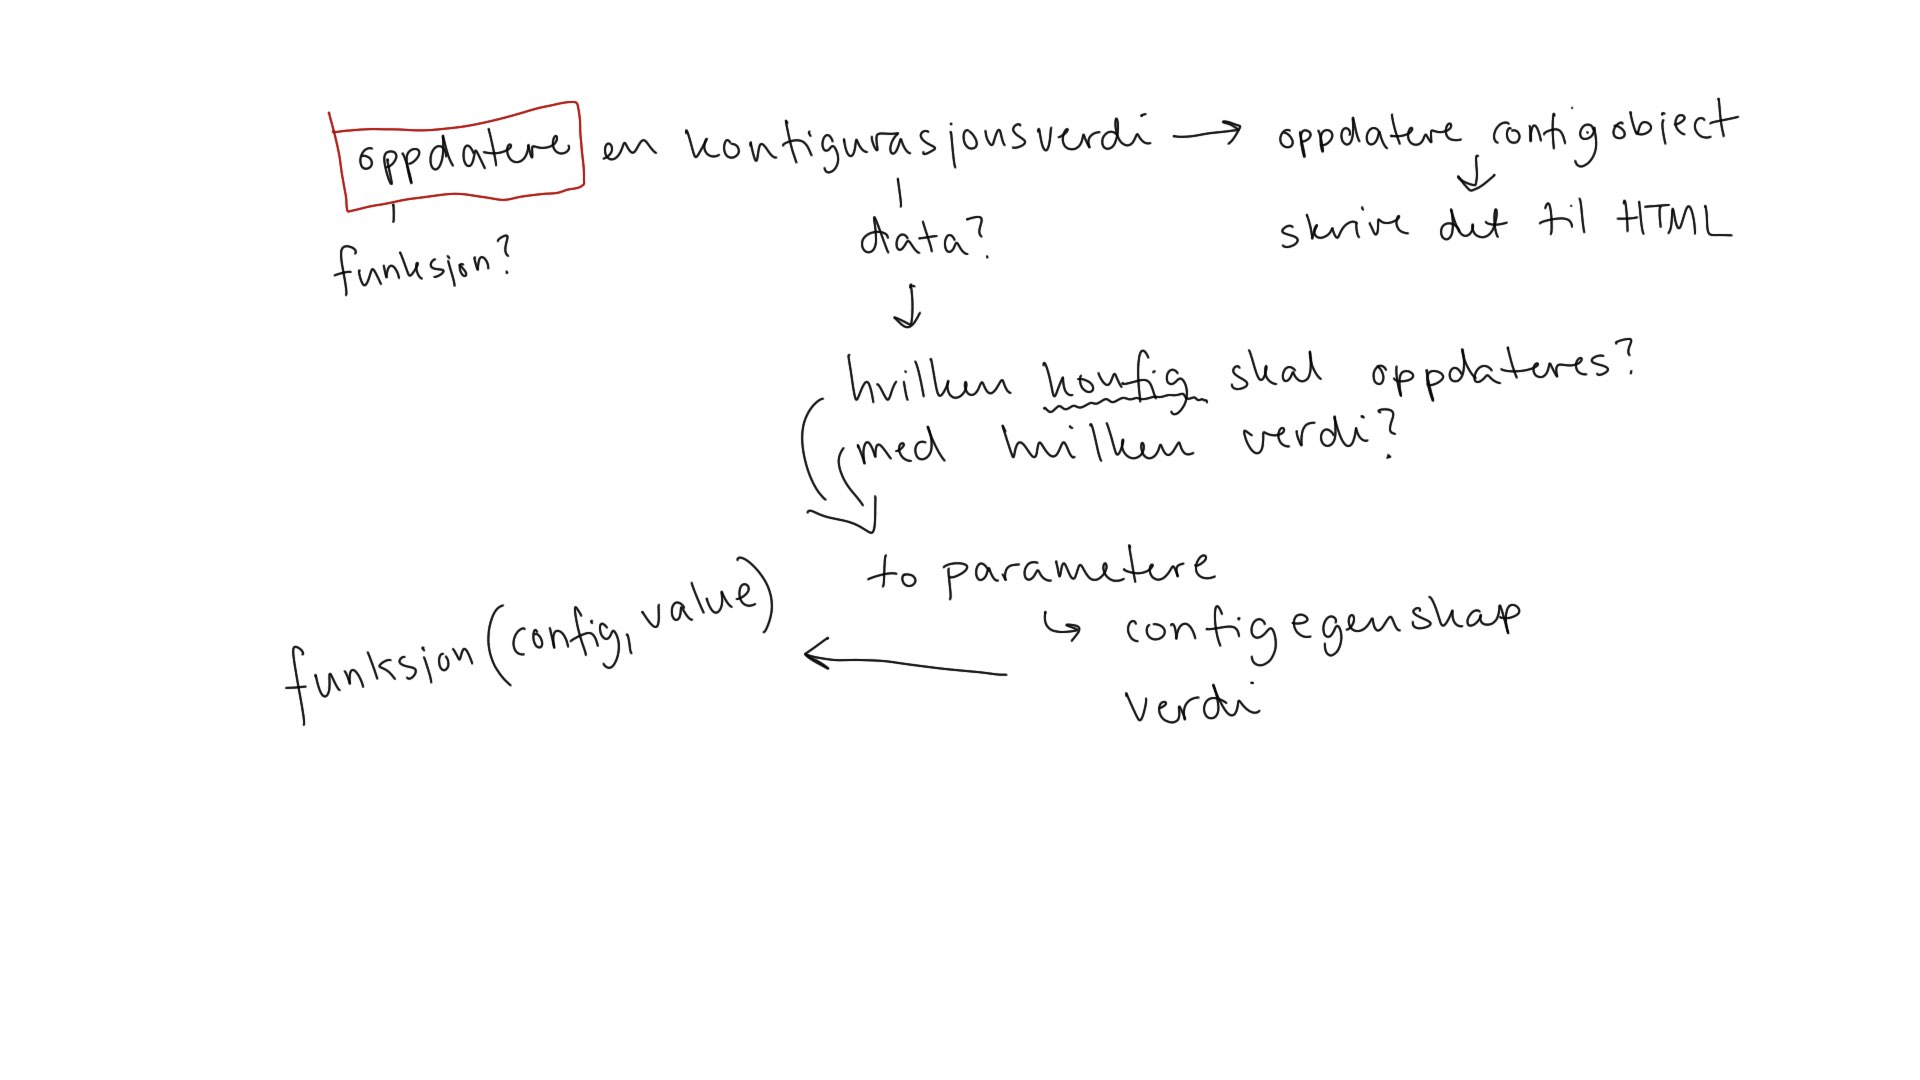 oppdatere en konfigurasjonsverdi → oppdatere config object
↓
skrive det til HTML
funksjon?
data?
↓
hvilken konfig skal oppdateres?
med hvilken verdi?
to parametere
↳ config egenskap
verdi
←
funksjon(config, value)